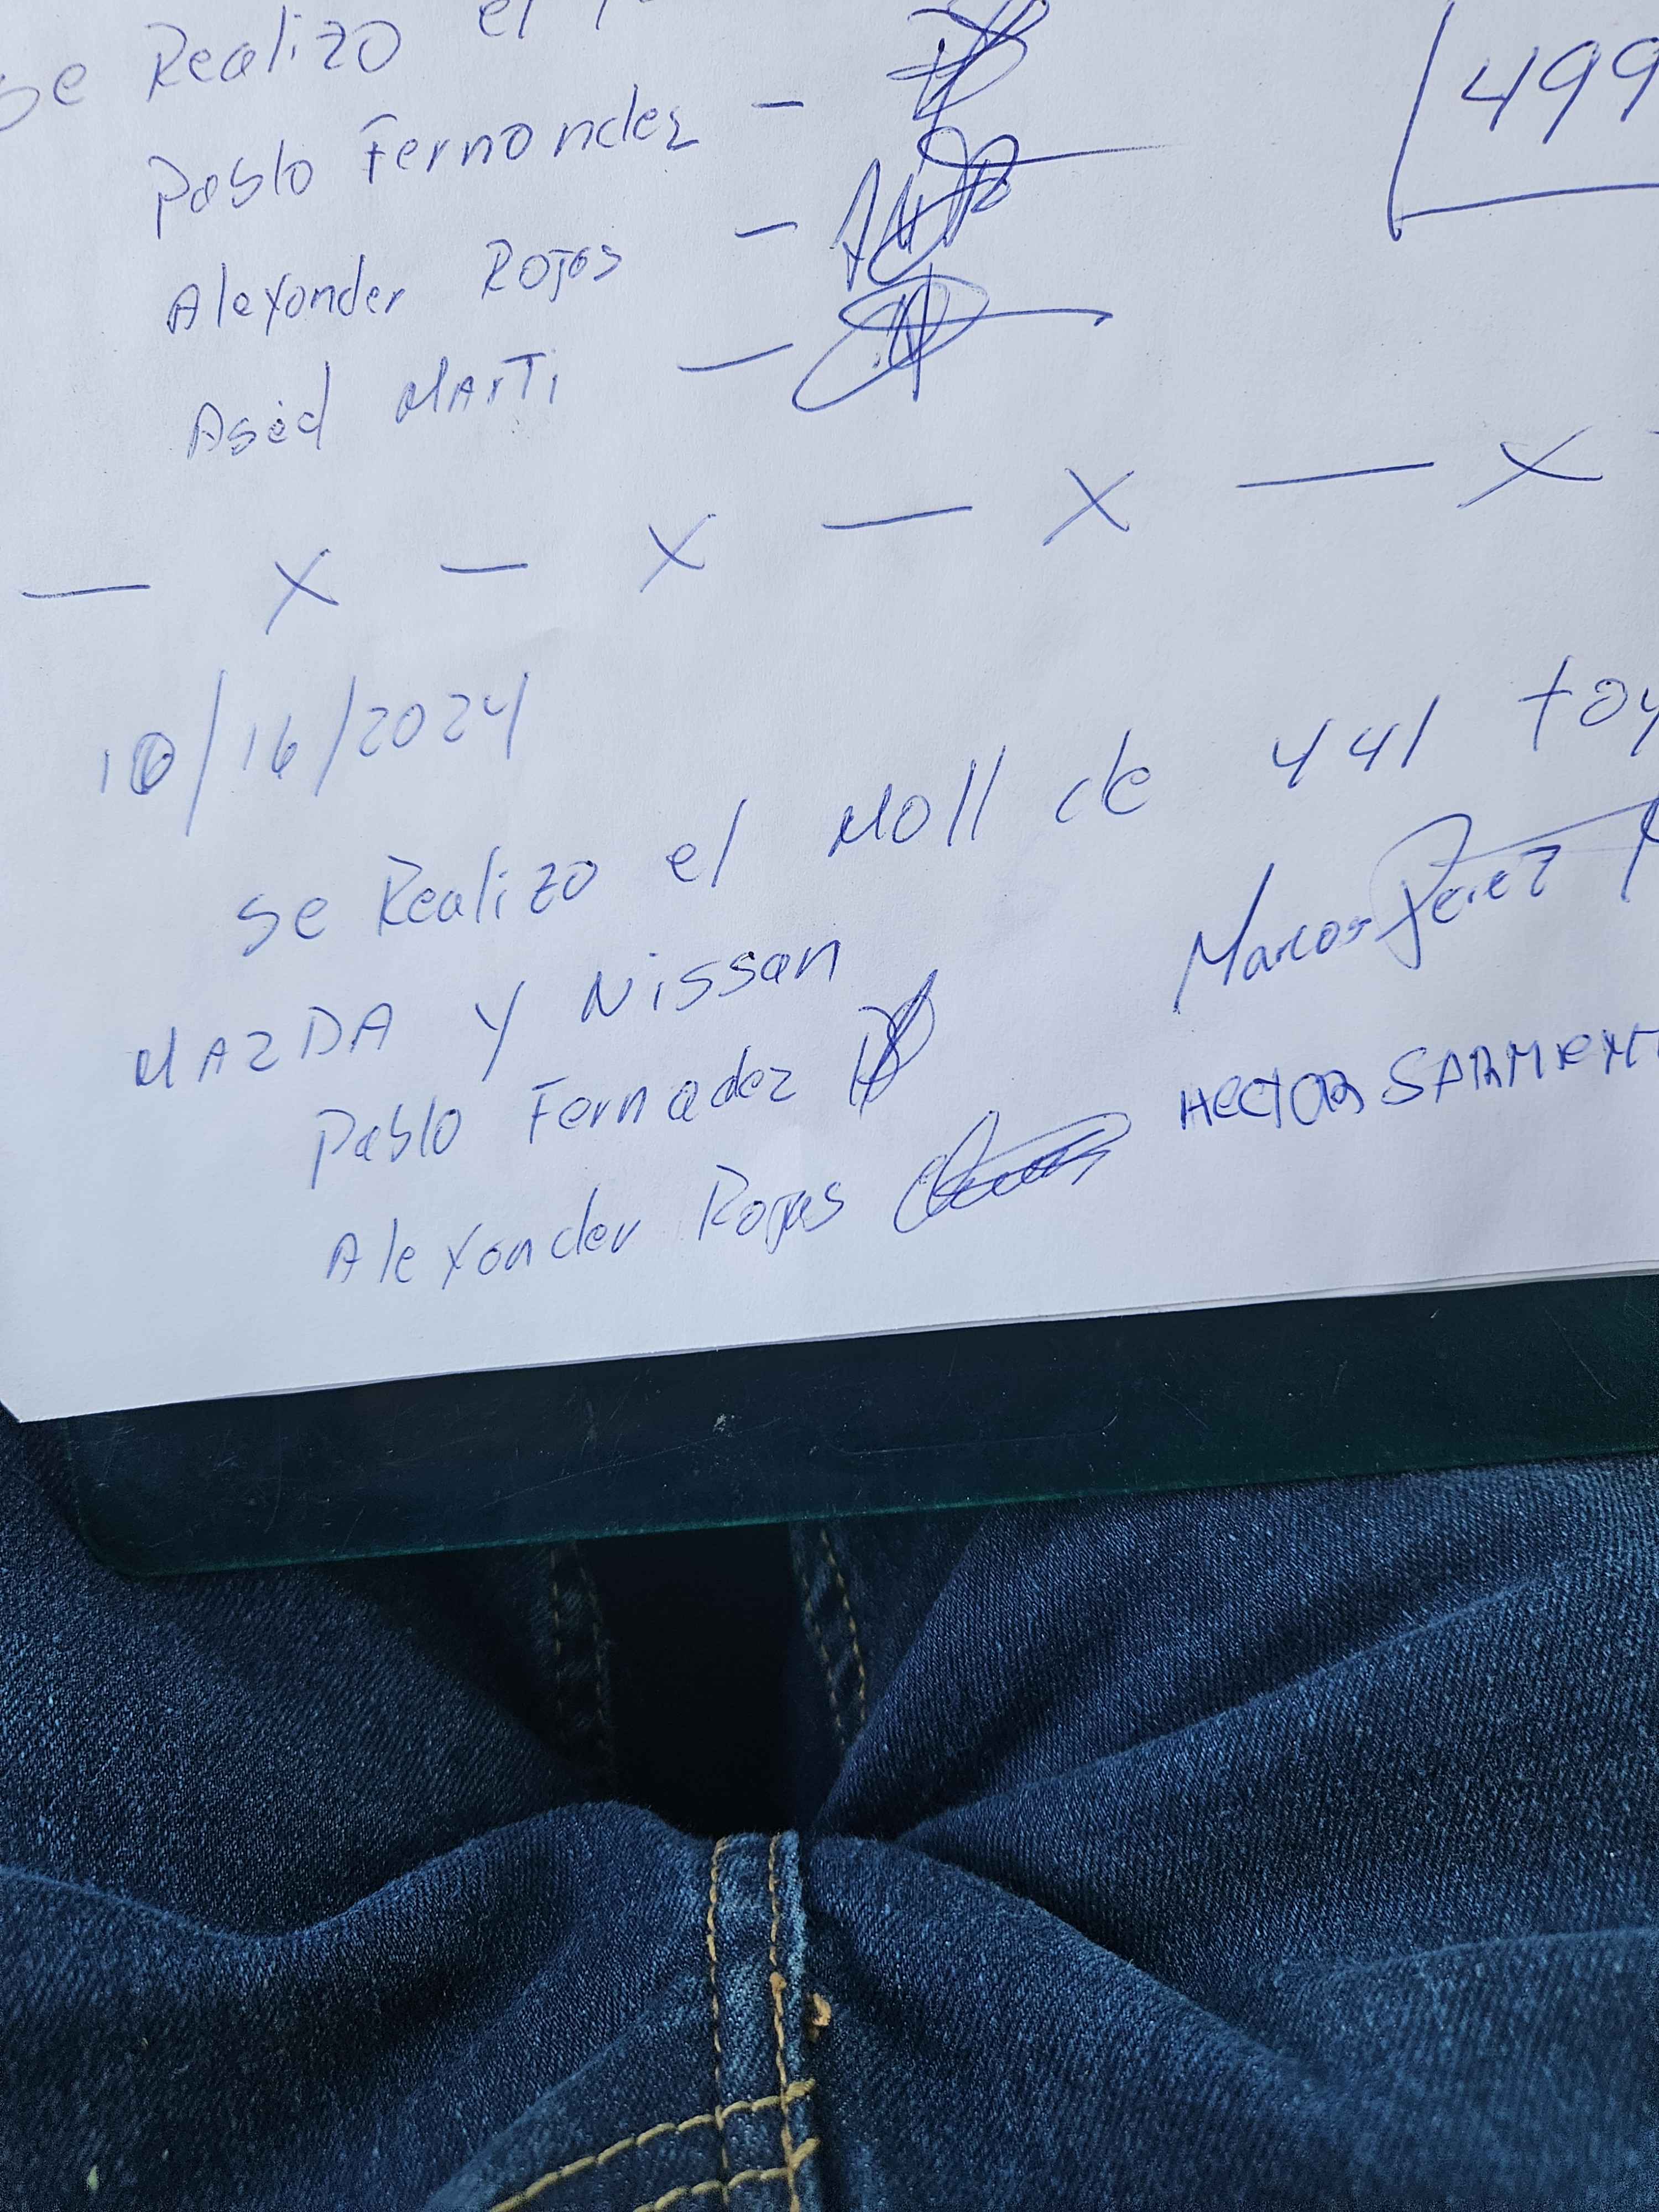 Se Realizo el
499
Pablo Fernandez -
Alexander Rojas -
Ased MArTi -
- X - X - X - X
10/16/2024
Se Realizo el Moll de 441 toy
MAZDA y Nissan
Marcos Perez
Pablo Fernadez
HECTOR SARMIENT
Alexander Rojas